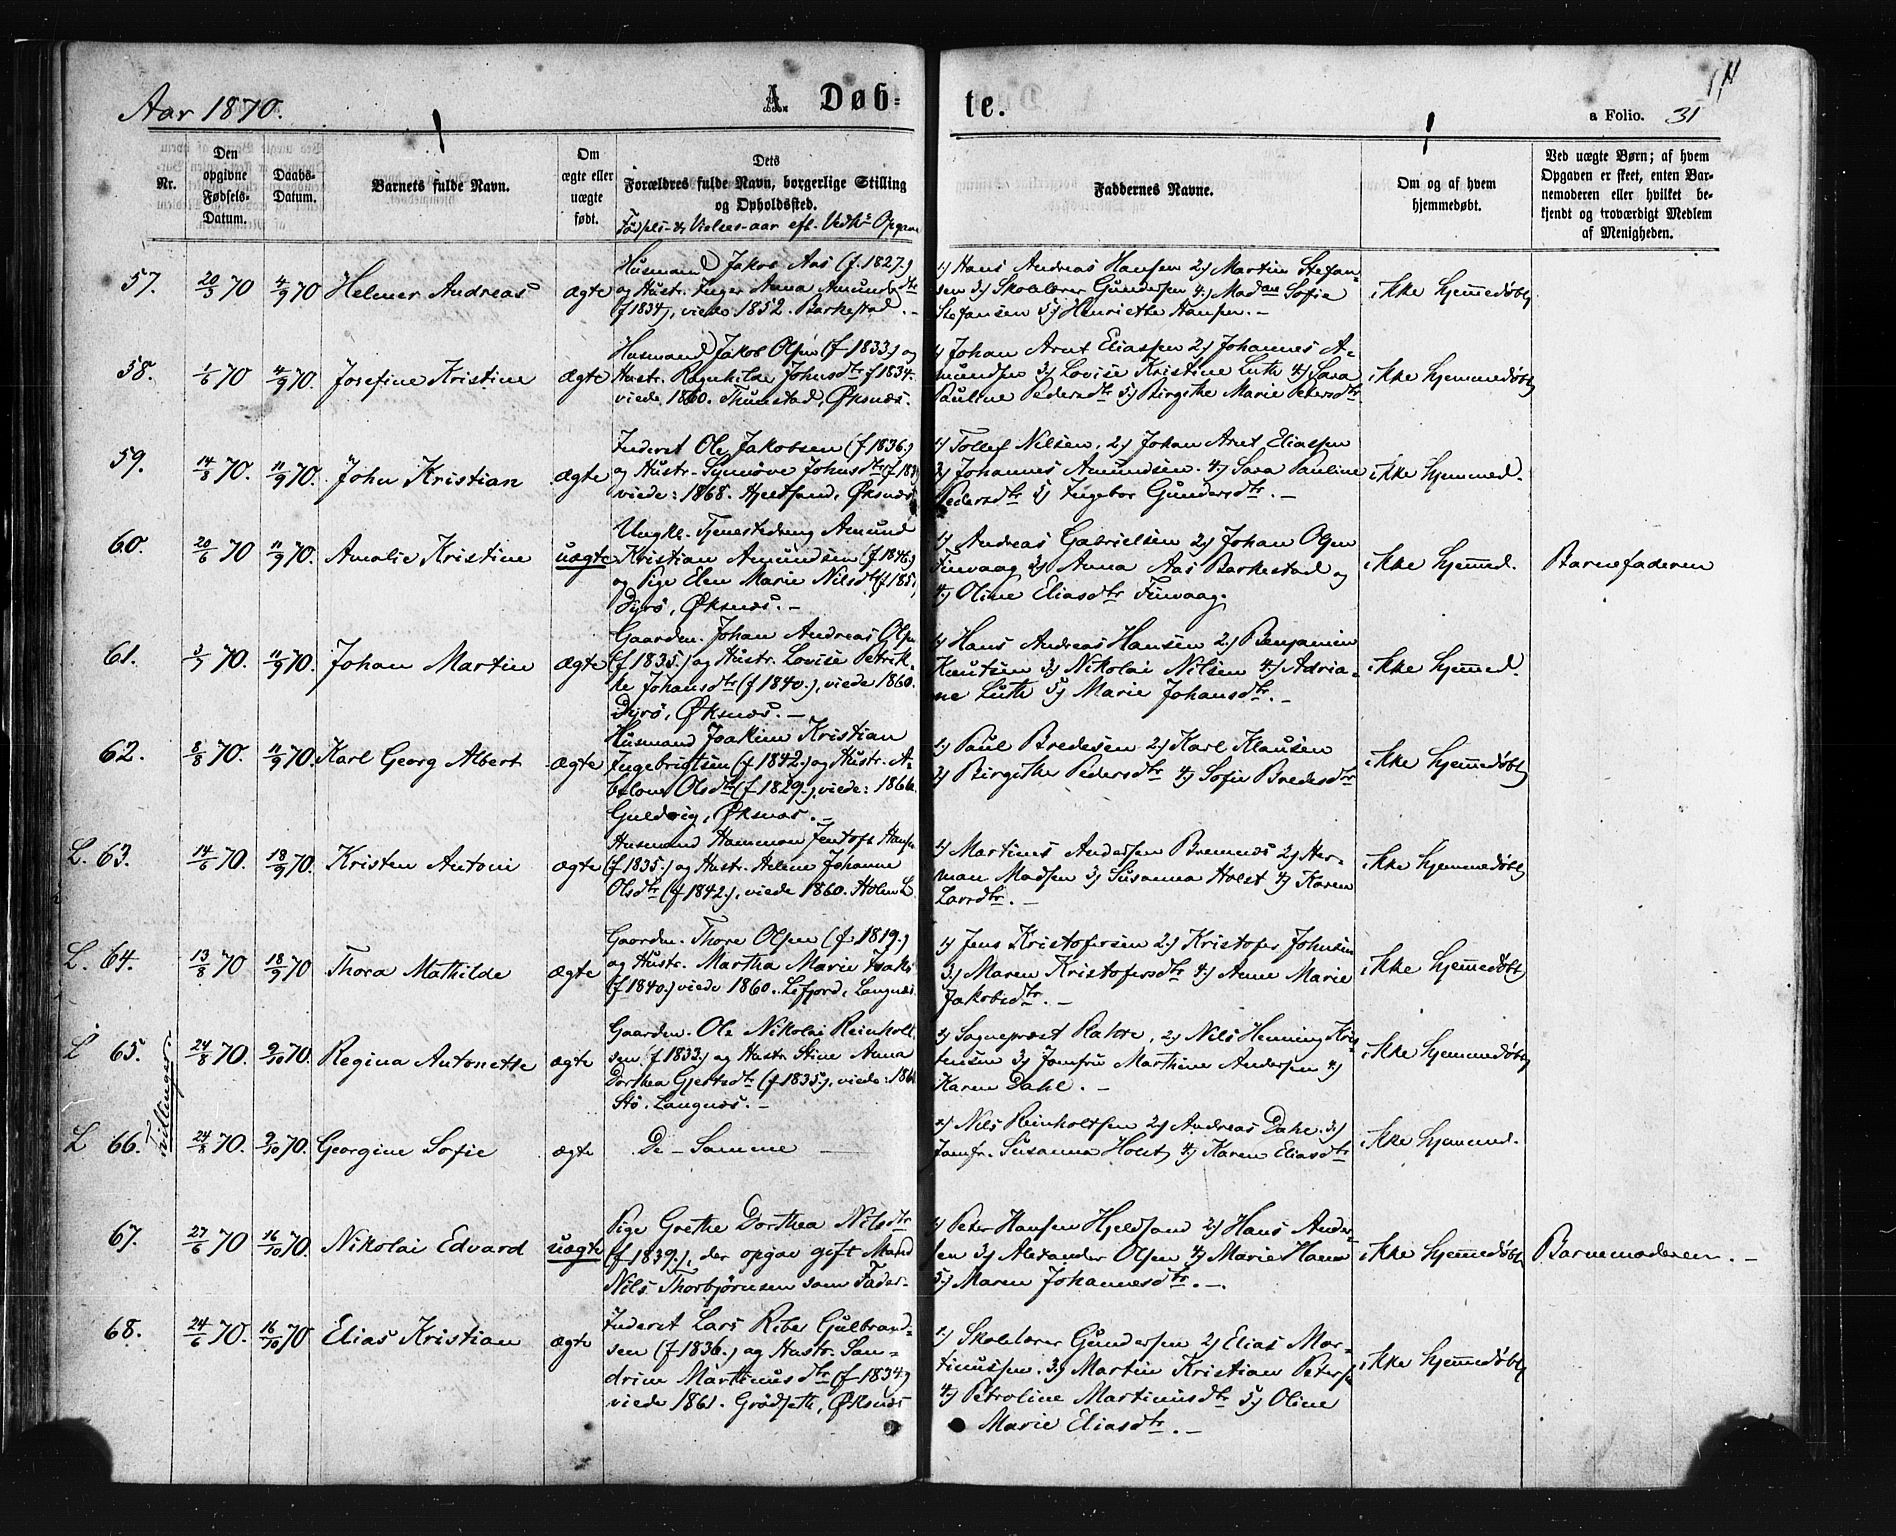 Aar 1870.
A. Døb-
te.
a Folio. 31
Nr.
Den opgivne Fødsels-Datum.
Daabs-Datum.
Barnets fulde Navn.
Om ægte eller uægte født.
Dets Forældres fulde Navn, borgerlige Stilling og Opholdssted.
Fødsels- og Vielses-aar eft. Vedk. Opgave
Faddernes Navne.
Om og af hvem hjemmedøbt.
Ved uægte Børn; af hvem Opgaven er skeet, enten Barnemoderen eller hvilket bekjendt og troværdigt Medlem af Menigheden.
57. 20/5 70 4/9 70 Helmer Andreas ægte
Husmand Jakob Aas (f. 1827.)
og Hustr. Inger Anna Amundsdtr
f 1834), viede 1852. Barkestad. -
1) Hans Andreas Hansen 2) Martin Stefan-
sen 3) Skolelærer Gundersen 4) Madam Sofie
Stefansen 5) Henriette Hansen. -
ikke hjemmedøbt.
58. 1/6 70 4/9 70. Josefine Kristine ægte
Husmand Jakob Olsen (f 1833.) og
Hustr. Ragnhilde Johnsdtr f 1834.
viede 1860. Tunstad, Øksnæs.
1) Johan Arnt Eliassen 2) Johannes A-
mundsen 3) Lovise Kristine Luth 4) Sara
Pauline Pedersdtr 5) Birgithe Marie Petersdtr
ikke hjemmedøbt
59. 14/8 70. 11/9 70. John Kristian ægte
Inderst Ole Jakobsen (f 1836.)
og Hustr. Synnøve Johnsdtr (f 183
viede: 1868. Hjeldsand, Øksnæs
1) Tollef Nilsen, 2) Johan Arnt Eliassen
3) Johannes Amundsen. 4) Sara Pauline
Pedersdtr 5) Ingebor Gundersdtr. -
ikke hjemmed.
60. 20/6 70 11/9 70. Amalie Kristine uægte
Ungk. Tjenestedreng Amund
Kristian Amundsen (f 1846.)
og Pige Elen Marie Nilsdtr (f 185
Dyrø, Øksnæs. -
1) Andreas Gabrielsen 2) Johan Olsen
Finvaag 3) Anna Aas Barkestad og
4) Oline Eliasdtr Finvaag.
ikke hjemmed. Barnefaderen
61. 3/7 70. 11/9 70. Johan Martin ægte
Gaardm. Johan Andreas Olsen
(f 1835.) og Hustr. Lovise Petrik-
ke Johansdtr (f 1840.), viede 1860.
Dyrø, Øksnæs. -
1) Hans Andreas Hansen 2) Benjamin
Knutsen 3) Nikolai Nilsen 4) Adria-
ne Luth 5) Marie Johansdtr. -
ikke hjemmed.
62. 8/8 70. 11/9 70. Karl Georg Albert ægte
Husmand Joakim Kristian
Ingebrigtsen (f 1842.) og Hustr. A-
belone Olsdtr (f 1829.), viede: 1866.
Guldvig, Øksnæs. -
1.) Paul Bredesen 2) Karl Klausen
3) Birgithe Pedersdtr 4) Sofie Bredesdtr
ikke hjemmedøbt
L. 63. 14/6 70. 18/9 70. Kristen Antoni ægte
Husmand Hammon Jentoft Hansen
(f 1835.) og Hustr. Helene Johanne
Olsdtr (f 1842.), viede 1860. Holm L
1) Martinus Andersen Bremnæs 2) Her-
man Madsen 3) Susanna Holst 4) Karen
Larsdtr. -
ikke hjemmedøbt
L. 64. 13/8 70 18/9 70 Thora Mathilde ægte
Gaardm. Thore Olsen (f 1819.)
og Hustr. Martha Marie Isaks
(f 1840.) viede 1860. Lifjord, Langnæs
1) Jens Kristofersen 2) Kristofer Johnsen
3) Maren Kristofersdtr 4) Anne Marie
Jakobsdtr. -
ikke hjemmedøbt
L 65. 24/8 70. 9/10 70. Regina Antonette ægte
Tvillinger.
Gaardm. Ole Nikolai Reinholt-
sen (f 1833.) og Hustr Stine Anna
Dorthea Gjertsdtr (f 1835.), viede: 186
Stø, Langnæs. -
1) Sognepræst Rakke, 2) Nils Henning Kri-
stensen 3) Jomfru Marthine Andersen 4)
Karen Dahl. -
ikke hjemmedøbt
L 66. 24/8 70. 9/10 70. Georgine Sofie ægte
De - Samme -
1) Nils Reinholtsen 2) Andreas Dahl 3)
Jomfr. Susanna Holst 4) Karen Eliasdtr
ikke hjemmed.
67. 27/6 70 16/10 70. Nikolai Edvard uægte
Pige Grethe Dorthea Nilsdtr
(f 1839.), der opgav gift Mand
Nils Thorbjørnsen som Fader.
1) Peter Hansen Hjeldsand 2) Hans Ander-
sen 3) Alexander Olsen 4) Marie Hansen
5) Maren Johannesdtr. -
ikke hjemmedøbt Barnemoderen. -
68. 24/6 70. 16/10 70 Elias Kristian ægte
Inderst Lars Riber Gulbrand-
sen (f 1836.) og Hustr. San-
drine Martinusdtr (f 1834.)
viede 1861. Grødseth, Øksnæs
1.) Skolelærer Gundersen 2) Elias Mar-
tinussen. 3) Martin Kristian Petersen
4) Petroline Martinusdtr 5) Oline
Marie Eliasdtr. -
ikke hjemmedøbt